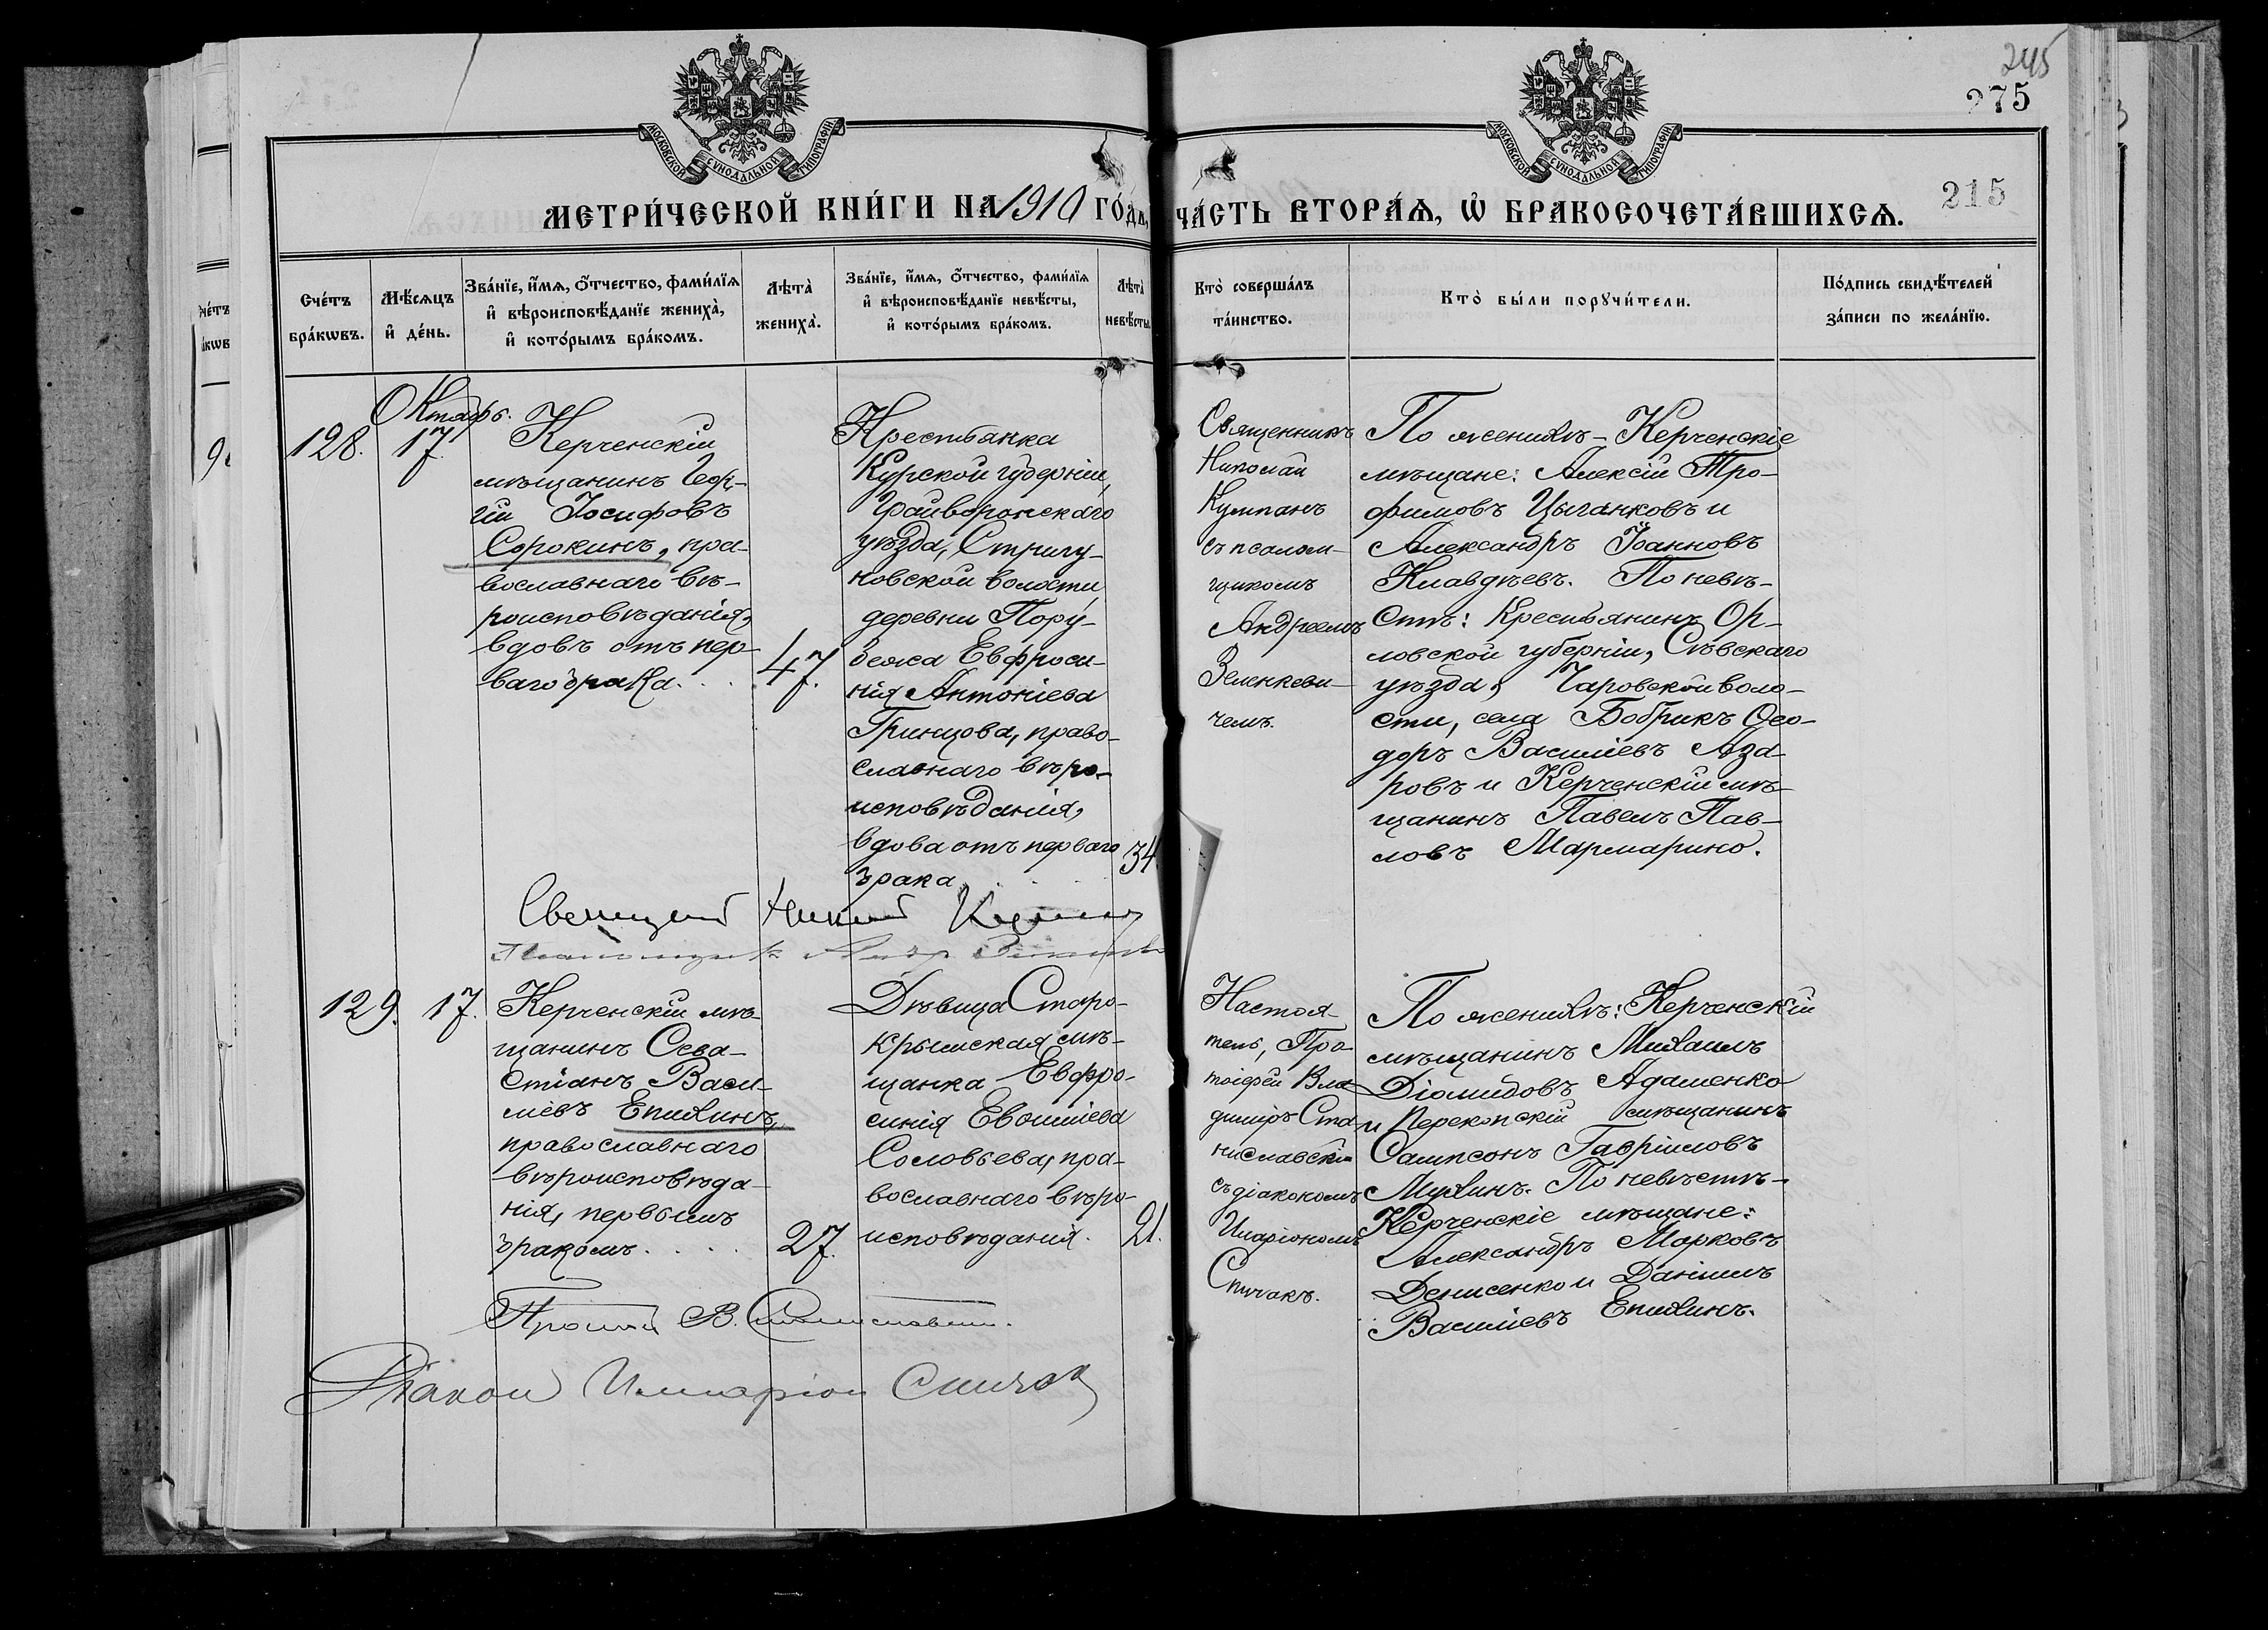 245
275
215
МОСКОВСКОЙ СѴНОДАЛЬНОЙ ТИПОГРАФІИ
МОСКОВСКОЙ СѴНОДАЛЬНОЙ ТИПОГРАФІИ
МЕТРИ́ЧЕСКОЙ КНИ́ГИ НА 1910 ГО́ДЪ, ЧА́СТЬ ВТОРА́Ѧ, Ѡ҆ БРАКОСОЧЕТА́ВШИХСѦ.
Сче́тъ бра́кѡвъ.
Мѣ́сѧцъ и҆ де́нь.
Зва́нїе, и҆́мѧ, ѻ҆́тчество, фами́лїѧ
и҆ вѣроисповѣ́данїе жениха̀,
и҆ кото́рымъ бра́комъ.
Лѣта̀ жениха̀.
Зва́нїе, и҆́мѧ, ѻ҆́тчество, фами́лїѧ
и҆ вѣроисповѣ́данїе невѣ́сты,
и҆ кото́рымъ бра́комъ.
Лѣта̀ невѣ́сты.
Кто̀ соверша́лъ
та́инство.
Кто̀ бы́ли порꙋчи́тели.
По́дпись свидѣ́телей
за́писи по жела́нїю.
128.
Октябрь.
17.
Керченскій
мѣщанинъ Геор-
гій Іосифовъ
Сорокинъ, пра-
вославнаго вѣ-
роисповѣданія,
вдовъ отъ пер-
ваго брака. . .
47.
Крестьянка
Курской губерніи,
Грайворонскаго
уѣзда, Стригу-
новской волости,
деревни Пору-
бежа Евфроси-
нія Антоніева
Гринцова, право-
славнаго вѣро-
исповѣданія,
вдова отъ перваго
брака . . . .
34
Священникъ
Николай
Кумпанъ
съ псалом-
щикомъ
Андреемъ
Зеленкеви-
чемъ.
По женихѣ - Керченскіе
мѣщане: Алексій Тро-
фимовъ Цыганковъ и
Александръ Іоанновъ
Клавдѣевъ. По невѣ-
стѣ: Крестьянинъ Ор-
ловской губерніи, Сѣвскаго
уѣзда, Чаровской воло-
сти, села Бобрикъ Ѳео-
доръ Василіевъ Аза-
ровъ и Керченскій мѣ-
щанинъ Павелъ Пав-
ловъ Мармарино.
129.
17.
Керченскій мѣ-
щанинъ Сева-
стіанъ Васи-
ліевъ Епихинъ,
православнаго
вѣроисповѣда-
нія, первымъ
бракомъ. . . .
27.
Дѣвица Старо-
крымская мѣ-
щанка Евфро-
синія Евоиліева
Соловьева, пра-
вославнаго вѣро-
исповѣданія.
21.
Настоя-
тель, Про-
тоіерей Вла-
диміръ Ста-
ниславскій
съ діакономъ
Иларіономъ
Спичакъ.
По женихѣ: Керченскій
мѣщанинъ Михаилъ
Діомидовъ Адаменко
и Перекопскій мѣщанинъ
Сампсонъ Гавріиловъ
Мухинъ. По невѣстѣ -
Керченскіе мѣщане:
Александръ Марковъ
Денисенко и Даніилъ
Василіевъ Епихинъ.
Діаконъ Илларіон Спичак